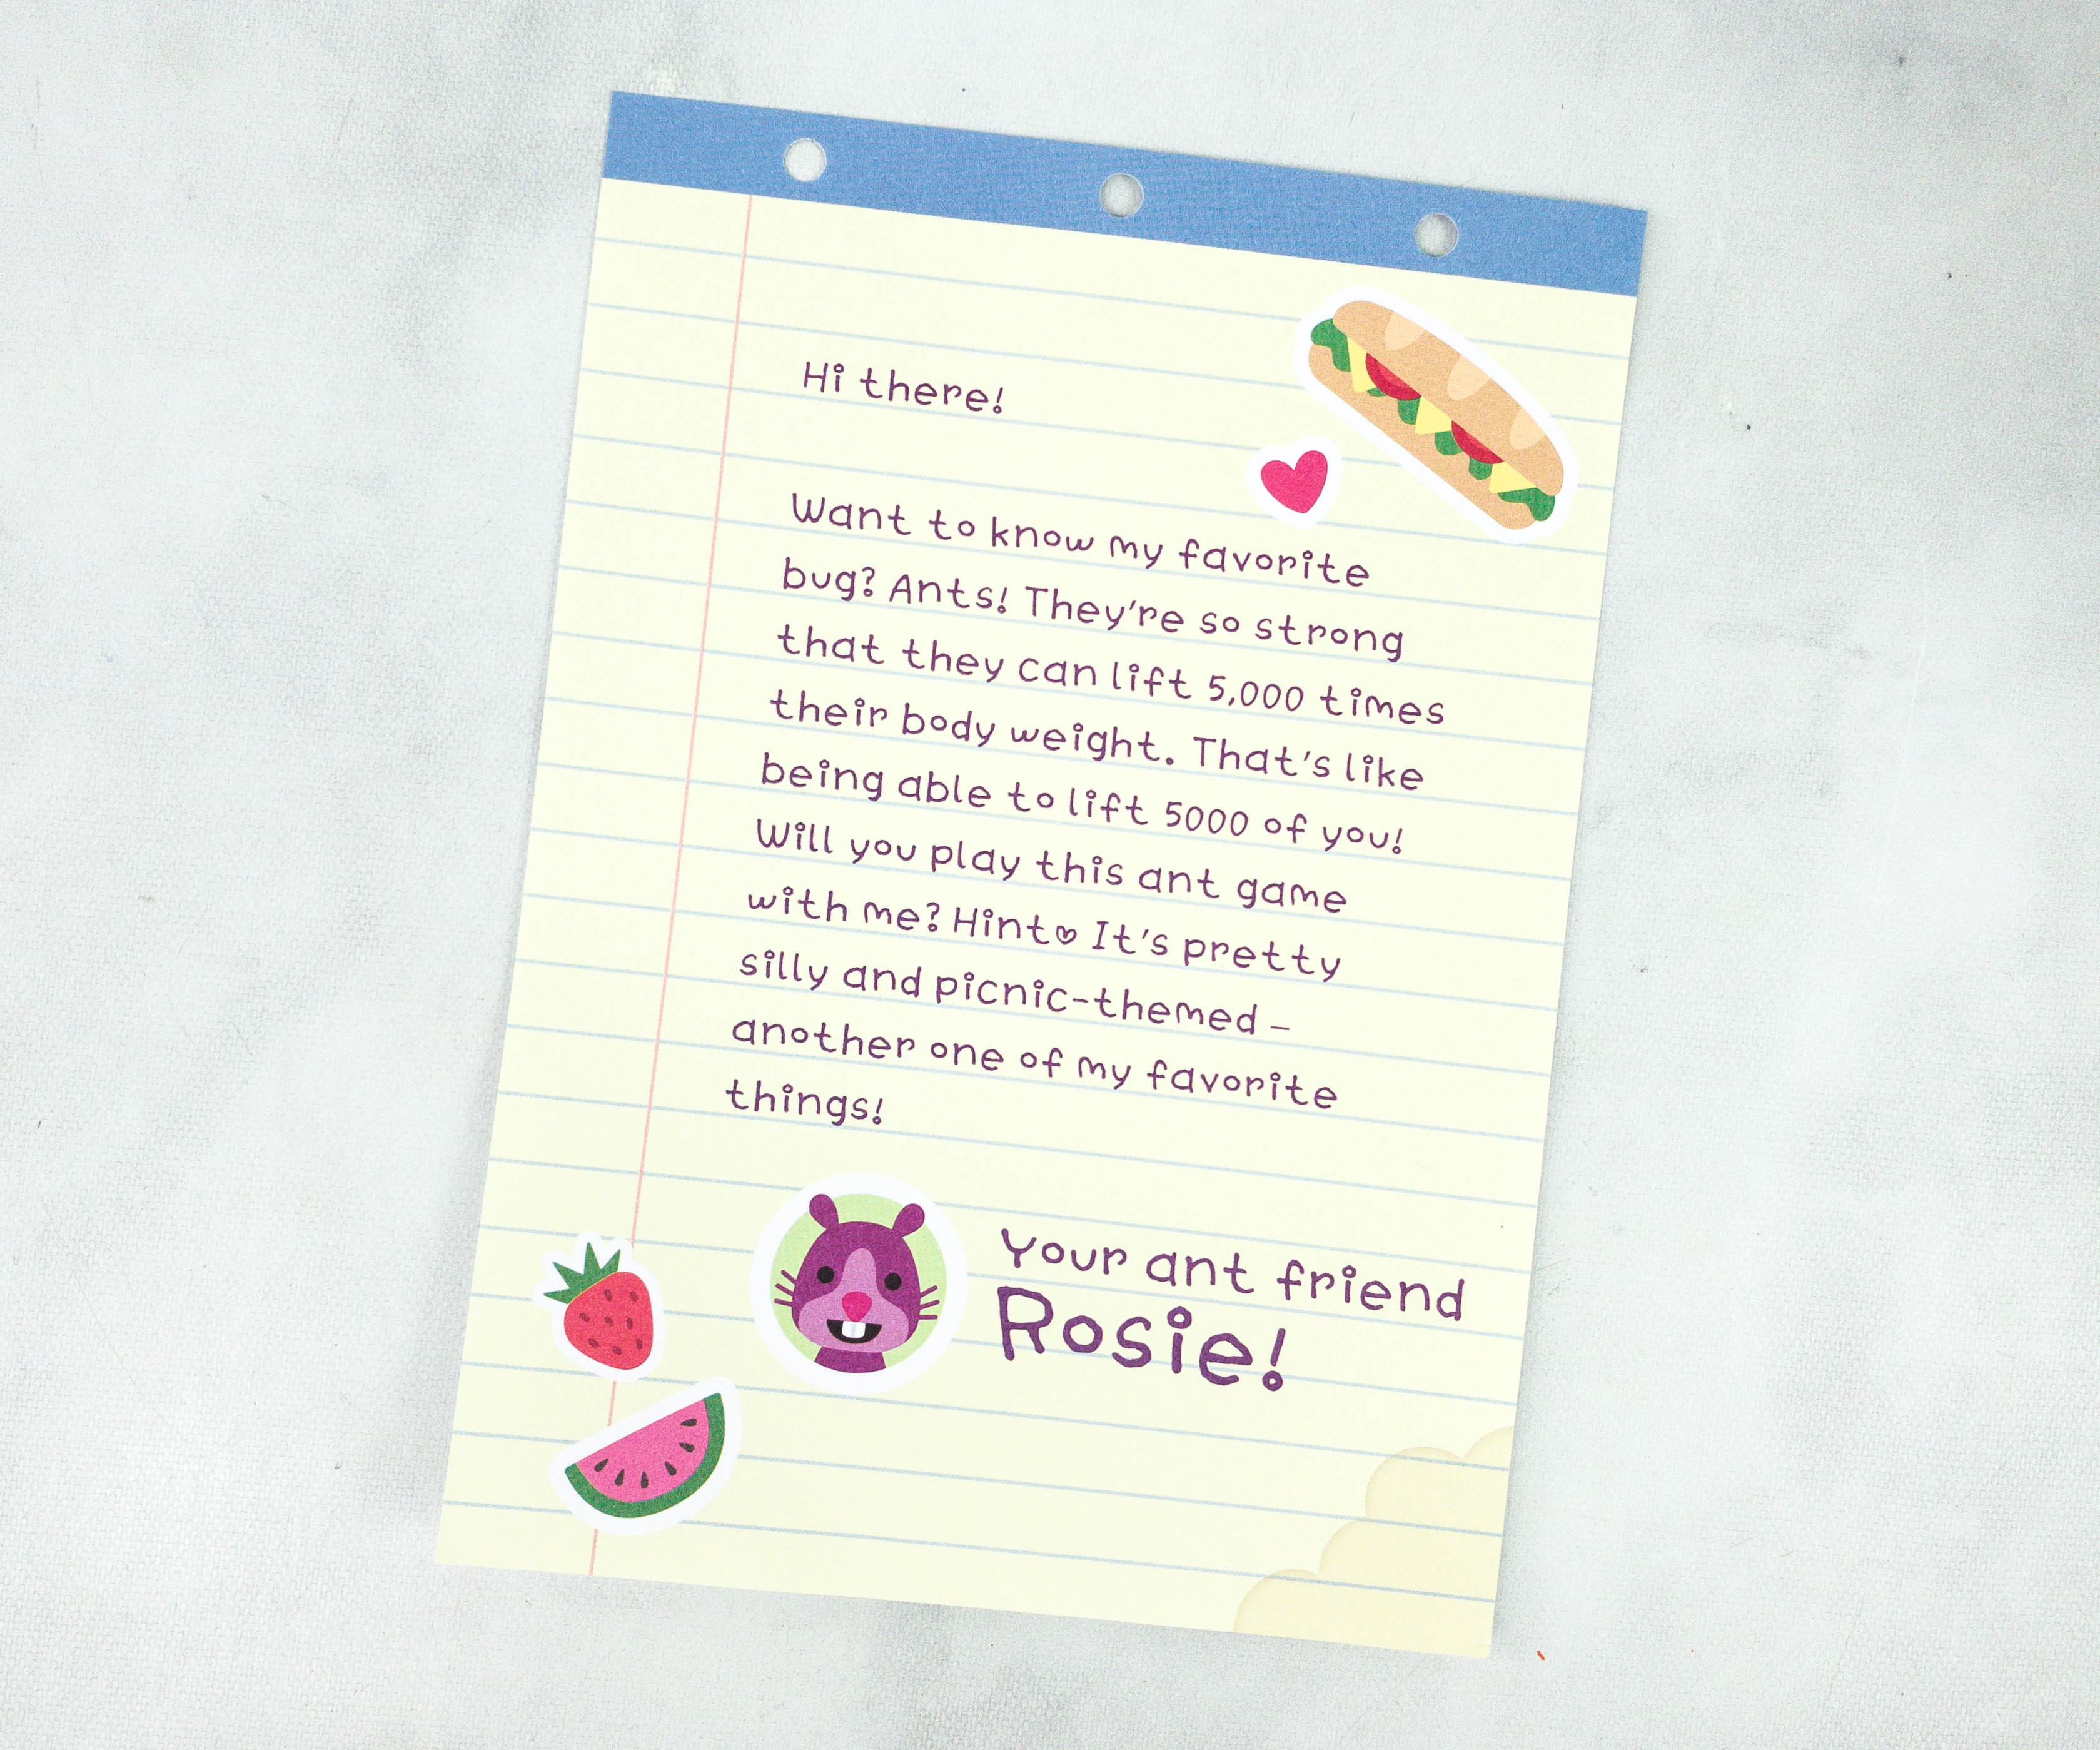 Hi there!
Want to know my favorite
bug? Ants! They're so strong
that they can lift 5,000 times
their body weight. That's like
being able to lift 5000 of you!
Will you play this ant game
with me? Hint♡ It's pretty
silly and picnic-themed –
another one of my favorite
things!
Your ant friend
Rosie!